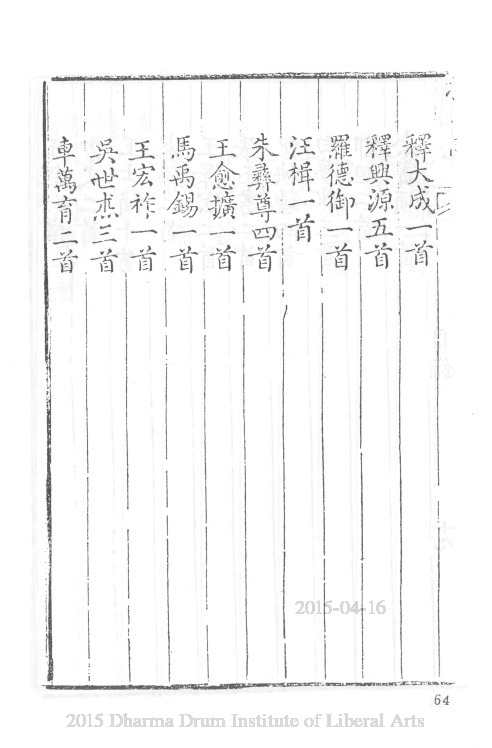 釋大成一首
釋興源五首
羅德御一首
汪楫一首
朱彝尊四首
王愈擴一首
馬禹錫一首
王宏祚一首
吳世杰三首
車萬育二首
2015-04-16
64
2015 Dharma Drum Institute of Liberal Arts